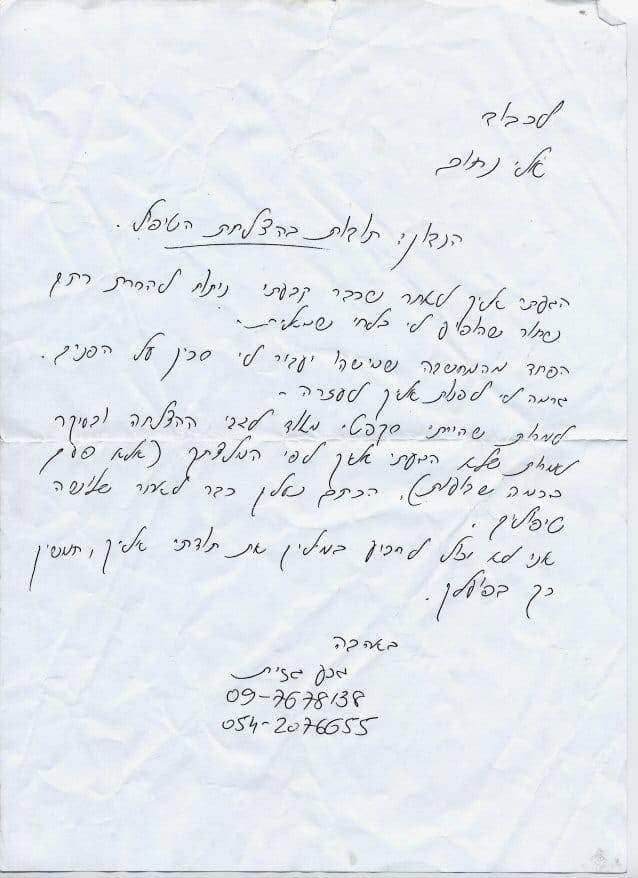 לכבוד
אלי נחום
הנדון: תודות בהצלחת הטיפול.
הגעתי אליך לאחר שכבר קבעתי ניתוח להסרת כתם
שחור שהופיע לי בלחי שמאלית.
הפחד מהמחשבה שמישהו יעביר לי סכין על הפנים.
גרמה לי לפנות אליך לעזרה.
למרות שהייתי סקפטי מאוד לגבי ההצלחה ובעיקר
למרות שלא הגעתי אליך לפי המלצתך (אלא פעם
בכמה שבועות), הכתם נעלם כבר לאחר שלושה
טיפולים.
אני לא יכול להביע במילים את תודתי אליך, תמשיך
כך בפועלך.
באהבה
גזית
09-7678138
054-2076655